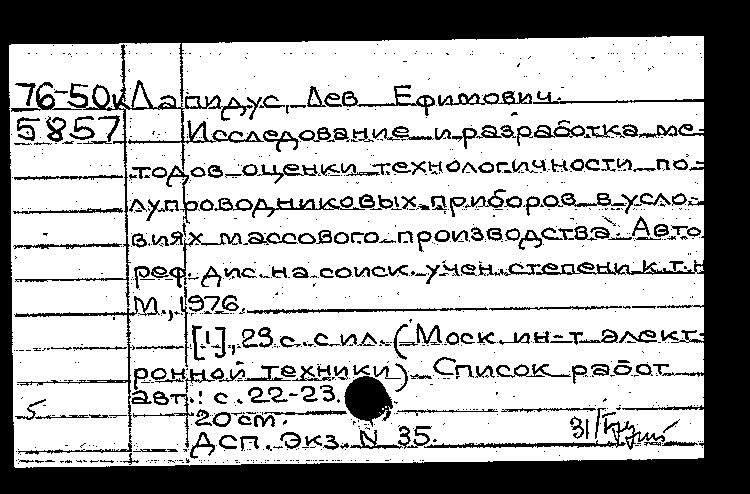 76-50к Лапидус, Лев Ефимович.
5857 Исследование и разработка ме-
тодов оценки технологичности по-
лупроводниковых приборов в усло-
виях массового производства. Авто
реф. дис. на соиск. учен. степени к.т.н
М., 1976.
[1], 29 с. с ил. (Моск. ин-т элект-
ронной техники) Список работ
авт.: с. 22-23.
5 20 см.
ДСП. Экз. N 35. 31/